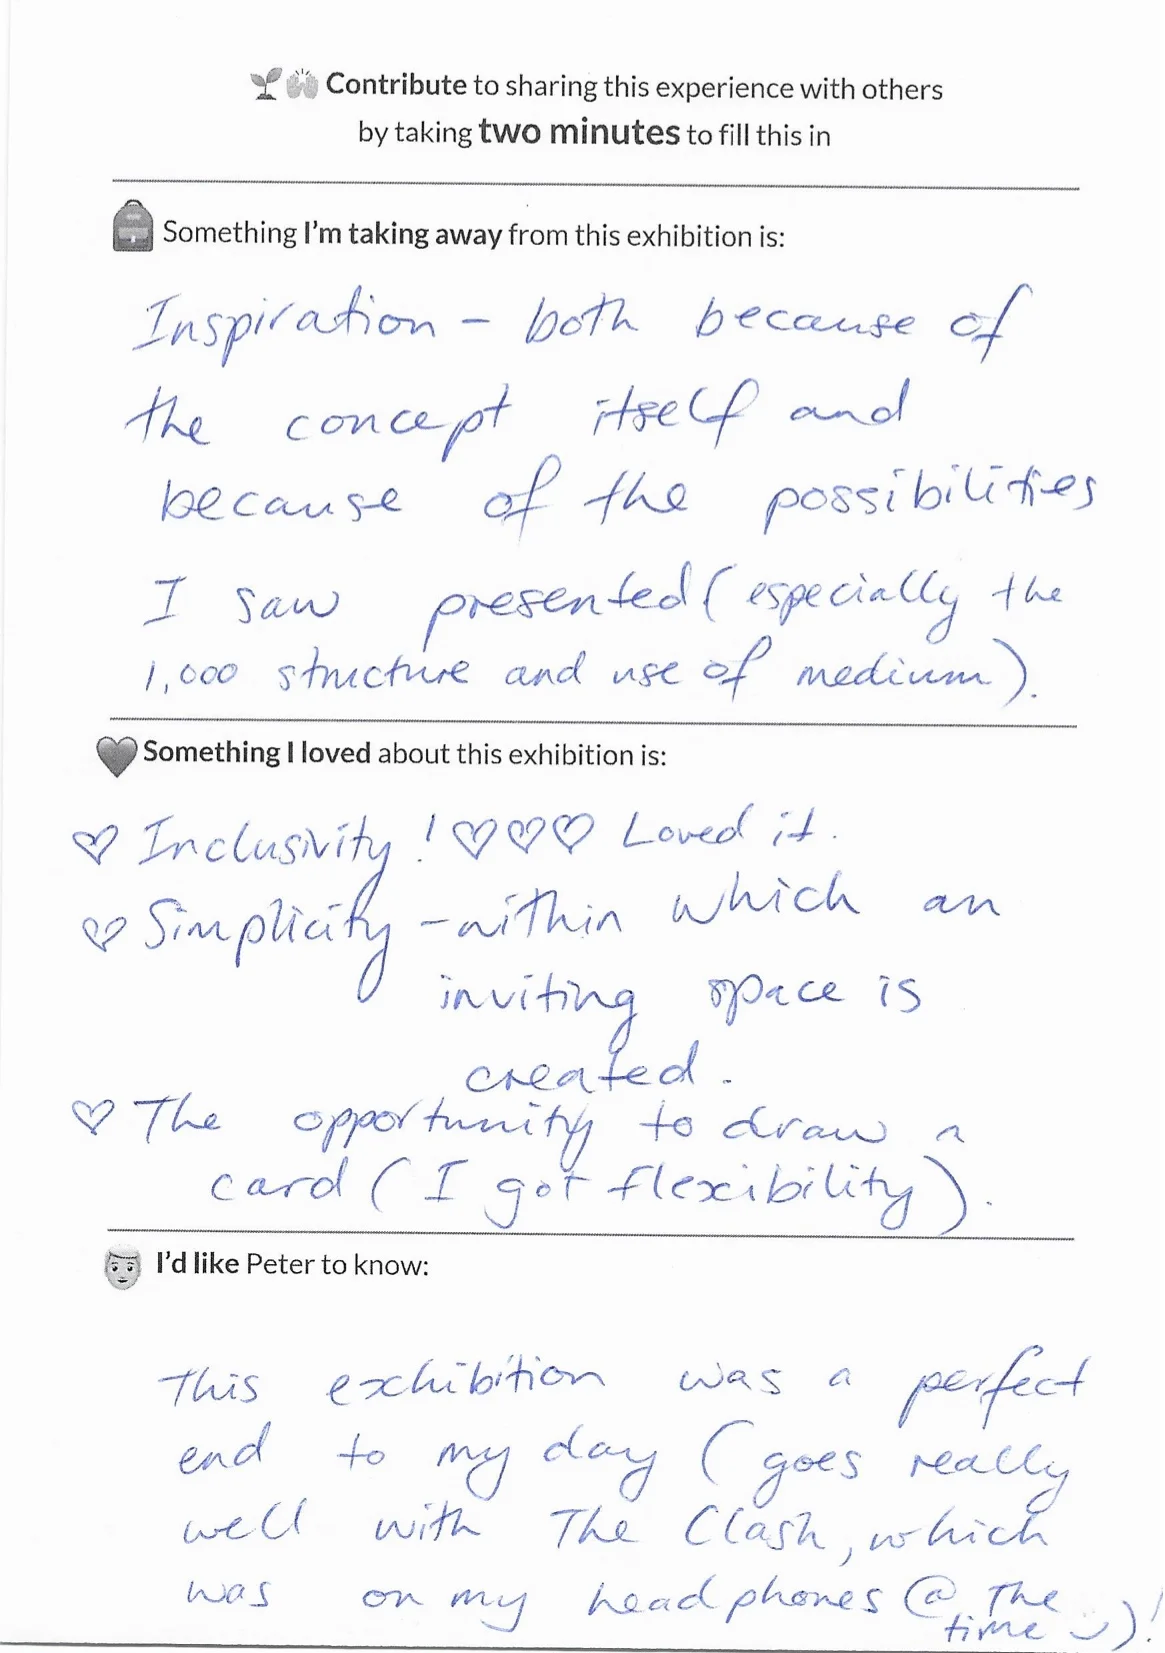 🌱🙌 Contribute to sharing this experience with others
by taking two minutes to fill this in
🎒 Something I'm taking away from this exhibition is:
Inspiration - both because of
the concept itself and
because of the possibilities
I saw presented (especially the
1,000 structure and use of medium).
🖤 Something I loved about this exhibition is:
♡ Inclusivity! ♡♡♡ Loved it.
♡ Simplicity - within which an
inviting space is
created.
♡ The opportunity to draw a
card (I got flexibility).
I'd like Peter to know:
This exhibition was a perfect
end to my day (goes really
well with The Clash, which
was on my headphones @ the
time ☺)!